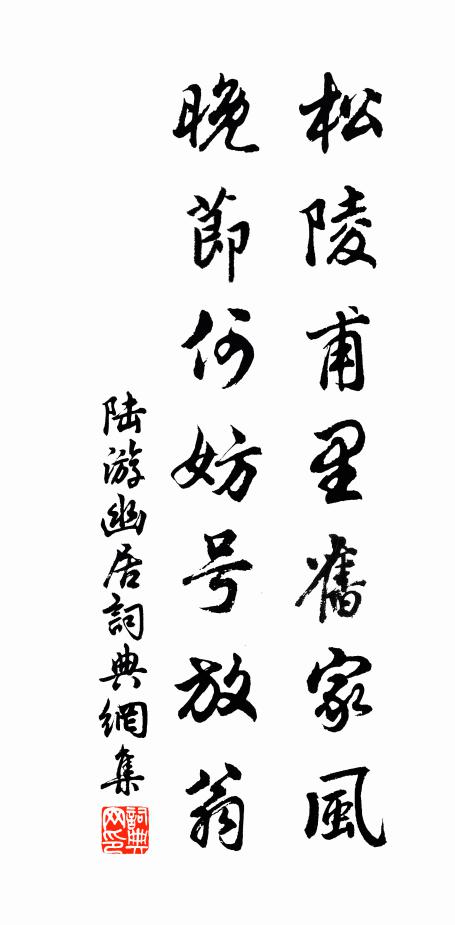 松陵甫里舊家風
晚節何妨号放翁
陆游幽居詞典網集
詞典网印